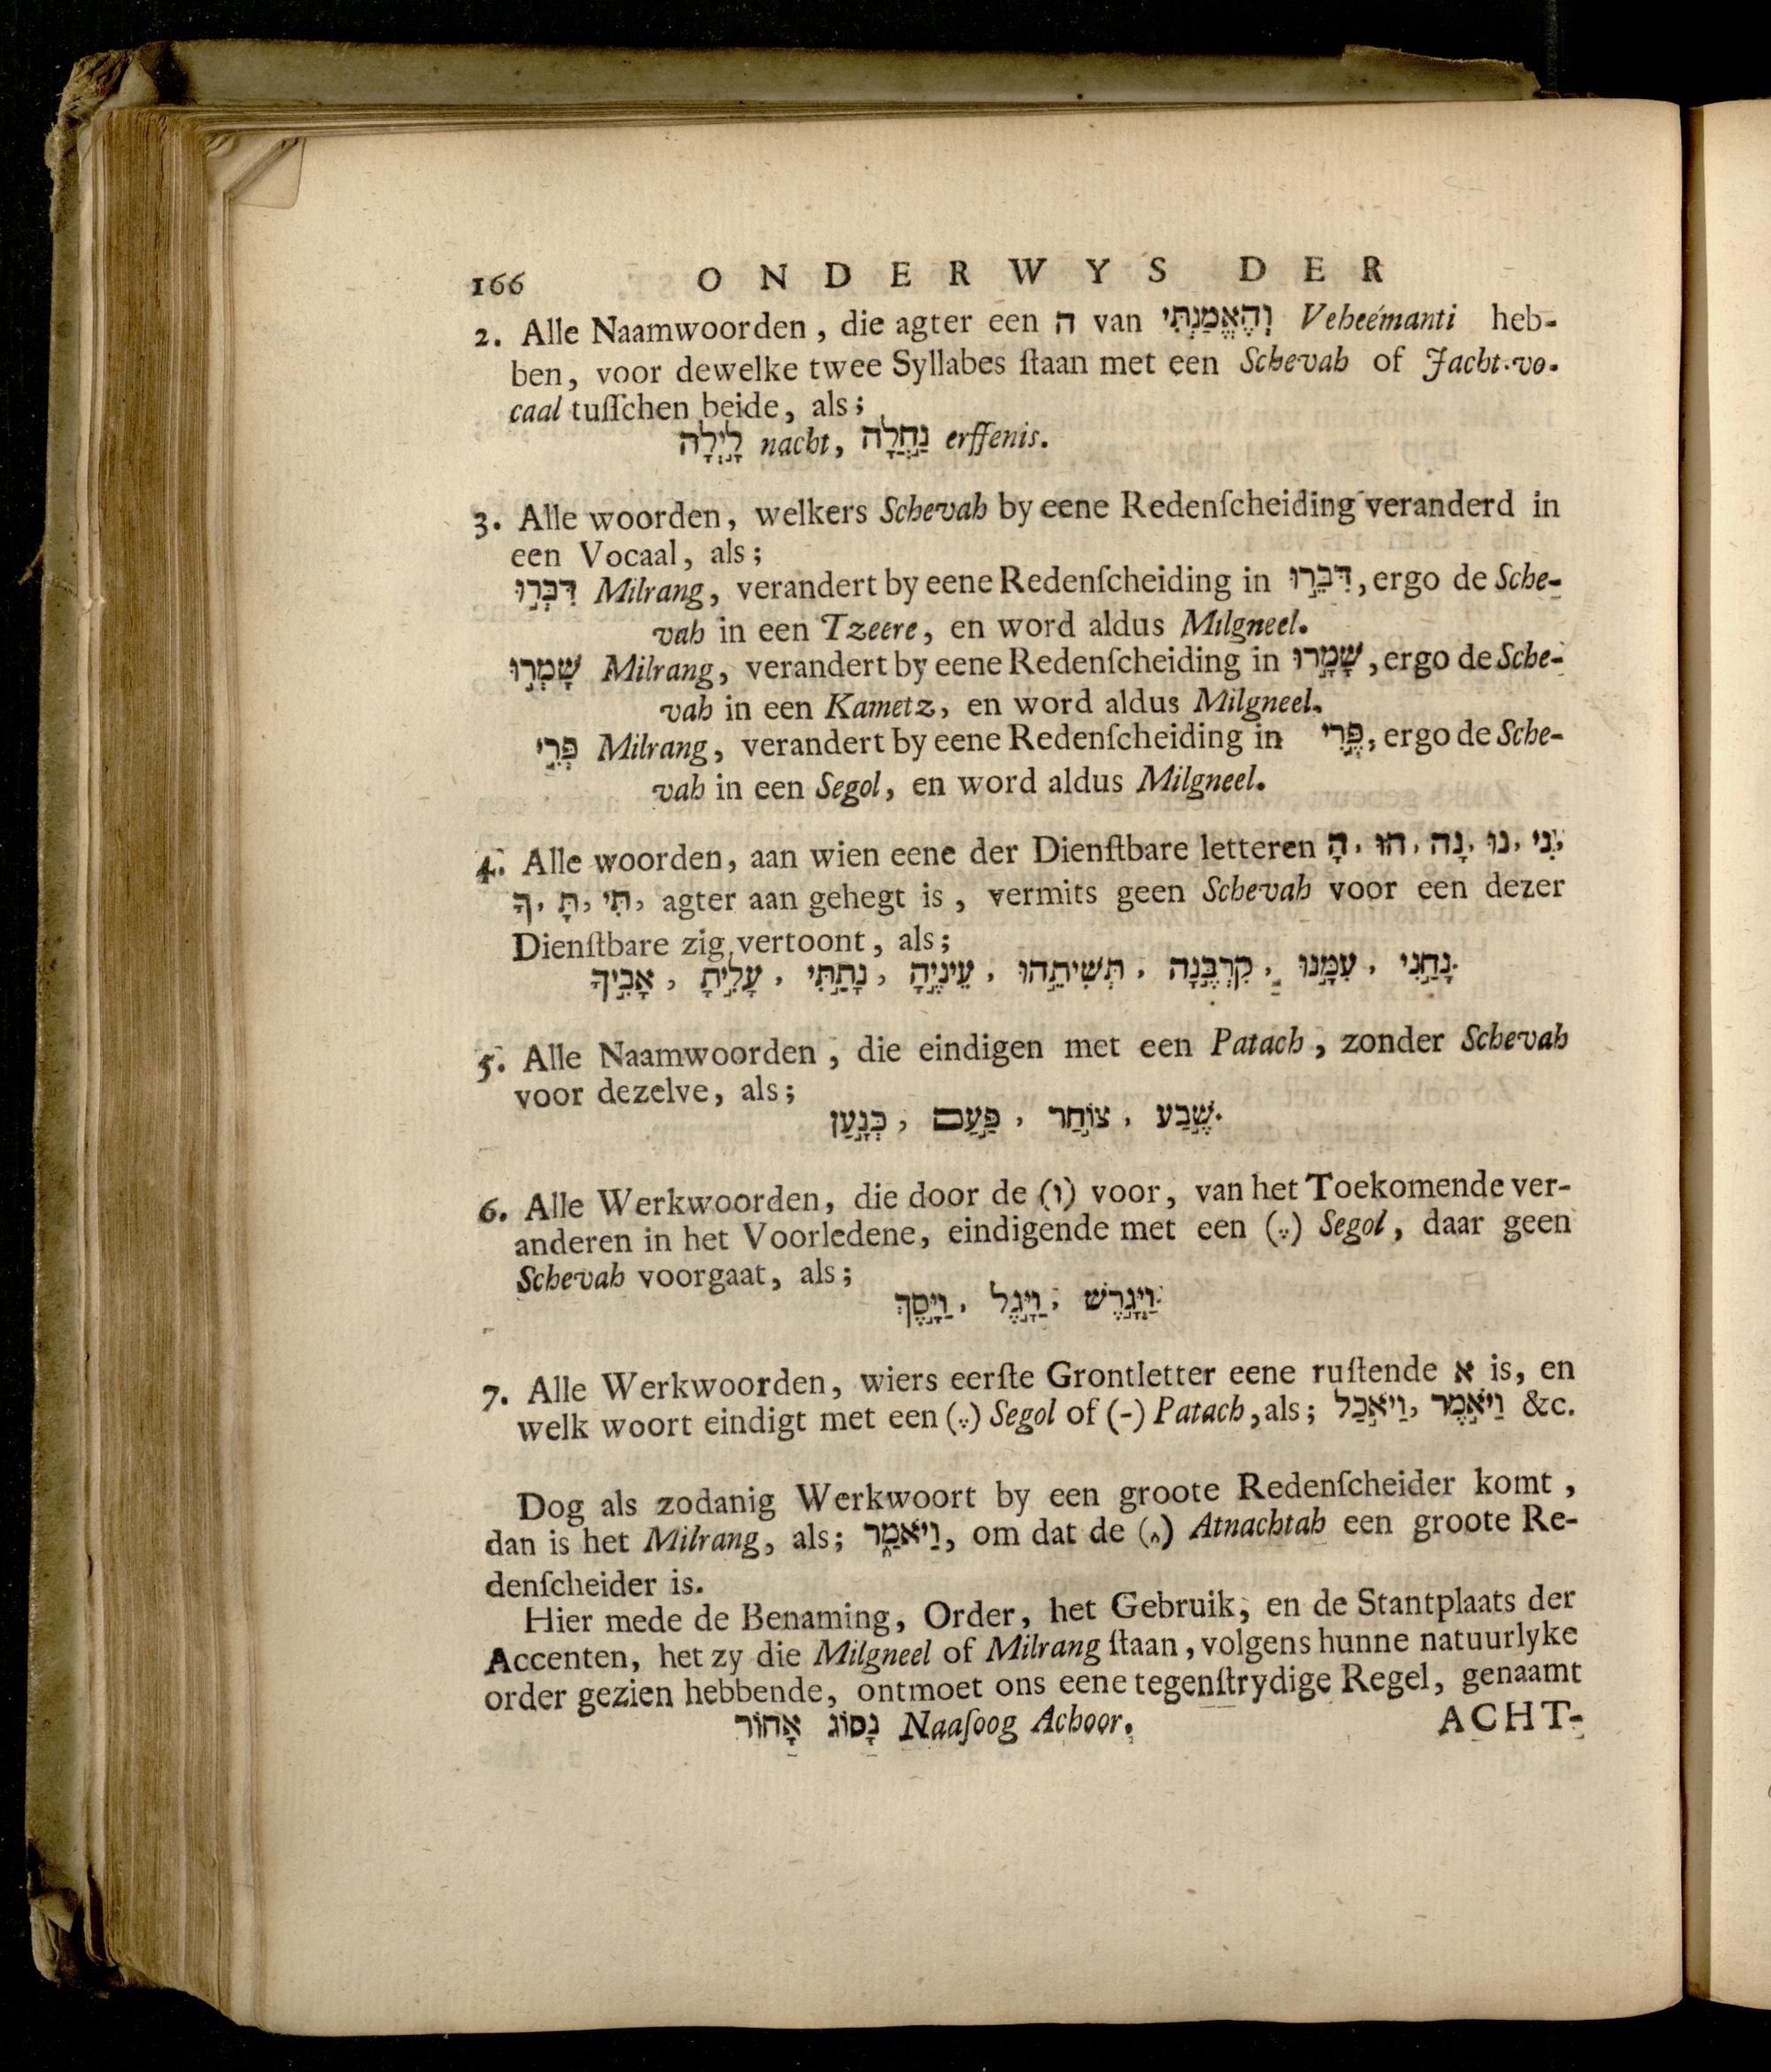 166 ONDERWYS DER
2. Alle Naamwoorden, die agter een ה van וְהֶאֱמַנְתִּי Veheémanti heb-
ben, voor dewelke twee Syllabes ſtaan met een Schevah of Jacht-vo-
caal tuſſchen beide, als;
לָיְלָה nacht, נַחֲלָה erffenis.
3. Alle woorden, welkers Schevah by eene Redenſcheiding veranderd in
een Vocaal, als;
דִּבְּר֣וּ Milrang, verandert by eene Redenſcheiding in דִּבֵּ֣רוּ, ergo de Sche-
vah in een Tzeere, en word aldus Milgneel.
שָׁמְר֣וּ Milrang, verandert by eene Redenſcheiding in שָׁמָ֣רוּ, ergo de Sche-
vah in een Kametz, en word aldus Milgneel.
פְּרִ֣י Milrang, verandert by eene Redenſcheiding in פֶּ֣רִי, ergo de Sche-
vah in een Segol, en word aldus Milgneel.
4. Alle woorden, aan wien eene der Dienſtbare letteren נִי, נוּ, נָה, הוּ, הָ,
תִּי, תָּ, ךָ, agter aan gehegt is, vermits geen Schevah voor een dezer
Dienſtbare zig vertoont, als;
נָחַ֣נִי, עִמָּ֣נוּ, קִרְבֶּ֣נָה, תְּשִׁיתֵ֣הוּ, עֵינֶ֣יהָ, נָתַ֣תִּי, עָלִ֣יתָ, אָבִ֣יךָ.
5. Alle Naamwoorden, die eindigen met een Patach, zonder Schevah
voor dezelve, als;
שֶׁ֣בַע, צוֹ֣חַר, פַּ֣עַם, כְּנָ֣עַן.
6. Alle Werkwoorden, die door de (ו) voor, van het Toekomende ver-
anderen in het Voorledene, eindigende met een (ֶ) Segol, daar geen
Schevah voorgaat, als;
וַיְגָ֣רֶשׁ, וַיָּ֣גֶל, וַיָּ֣סֶךְ.
7. Alle Werkwoorden, wiers eerſte Grontletter eene ruſtende א is, en
welk woort eindigt met een (ֶ) Segol of (-) Patach, als; וַיֹּ֣אמֶר, וַיֹּ֣אכַל &c.
Dog als zodanig Werkwoort by een groote Redenſcheider komt,
dan is het Milrang, als; וַיֹּאמַ֑ר, om dat de (֑) Atnachtah een groote Re-
denſcheider is.
Hier mede de Benaming, Order, het Gebruik, en de Stantplaats der
Accenten, het zy die Milgneel of Milrang ſtaan, volgens hunne natuurlyke
order gezien hebbende, ontmoet ons eene tegenſtrydige Regel, genaamt
נָסוֹג אָחוֹר Naaſoog Achoor.
ACHT-